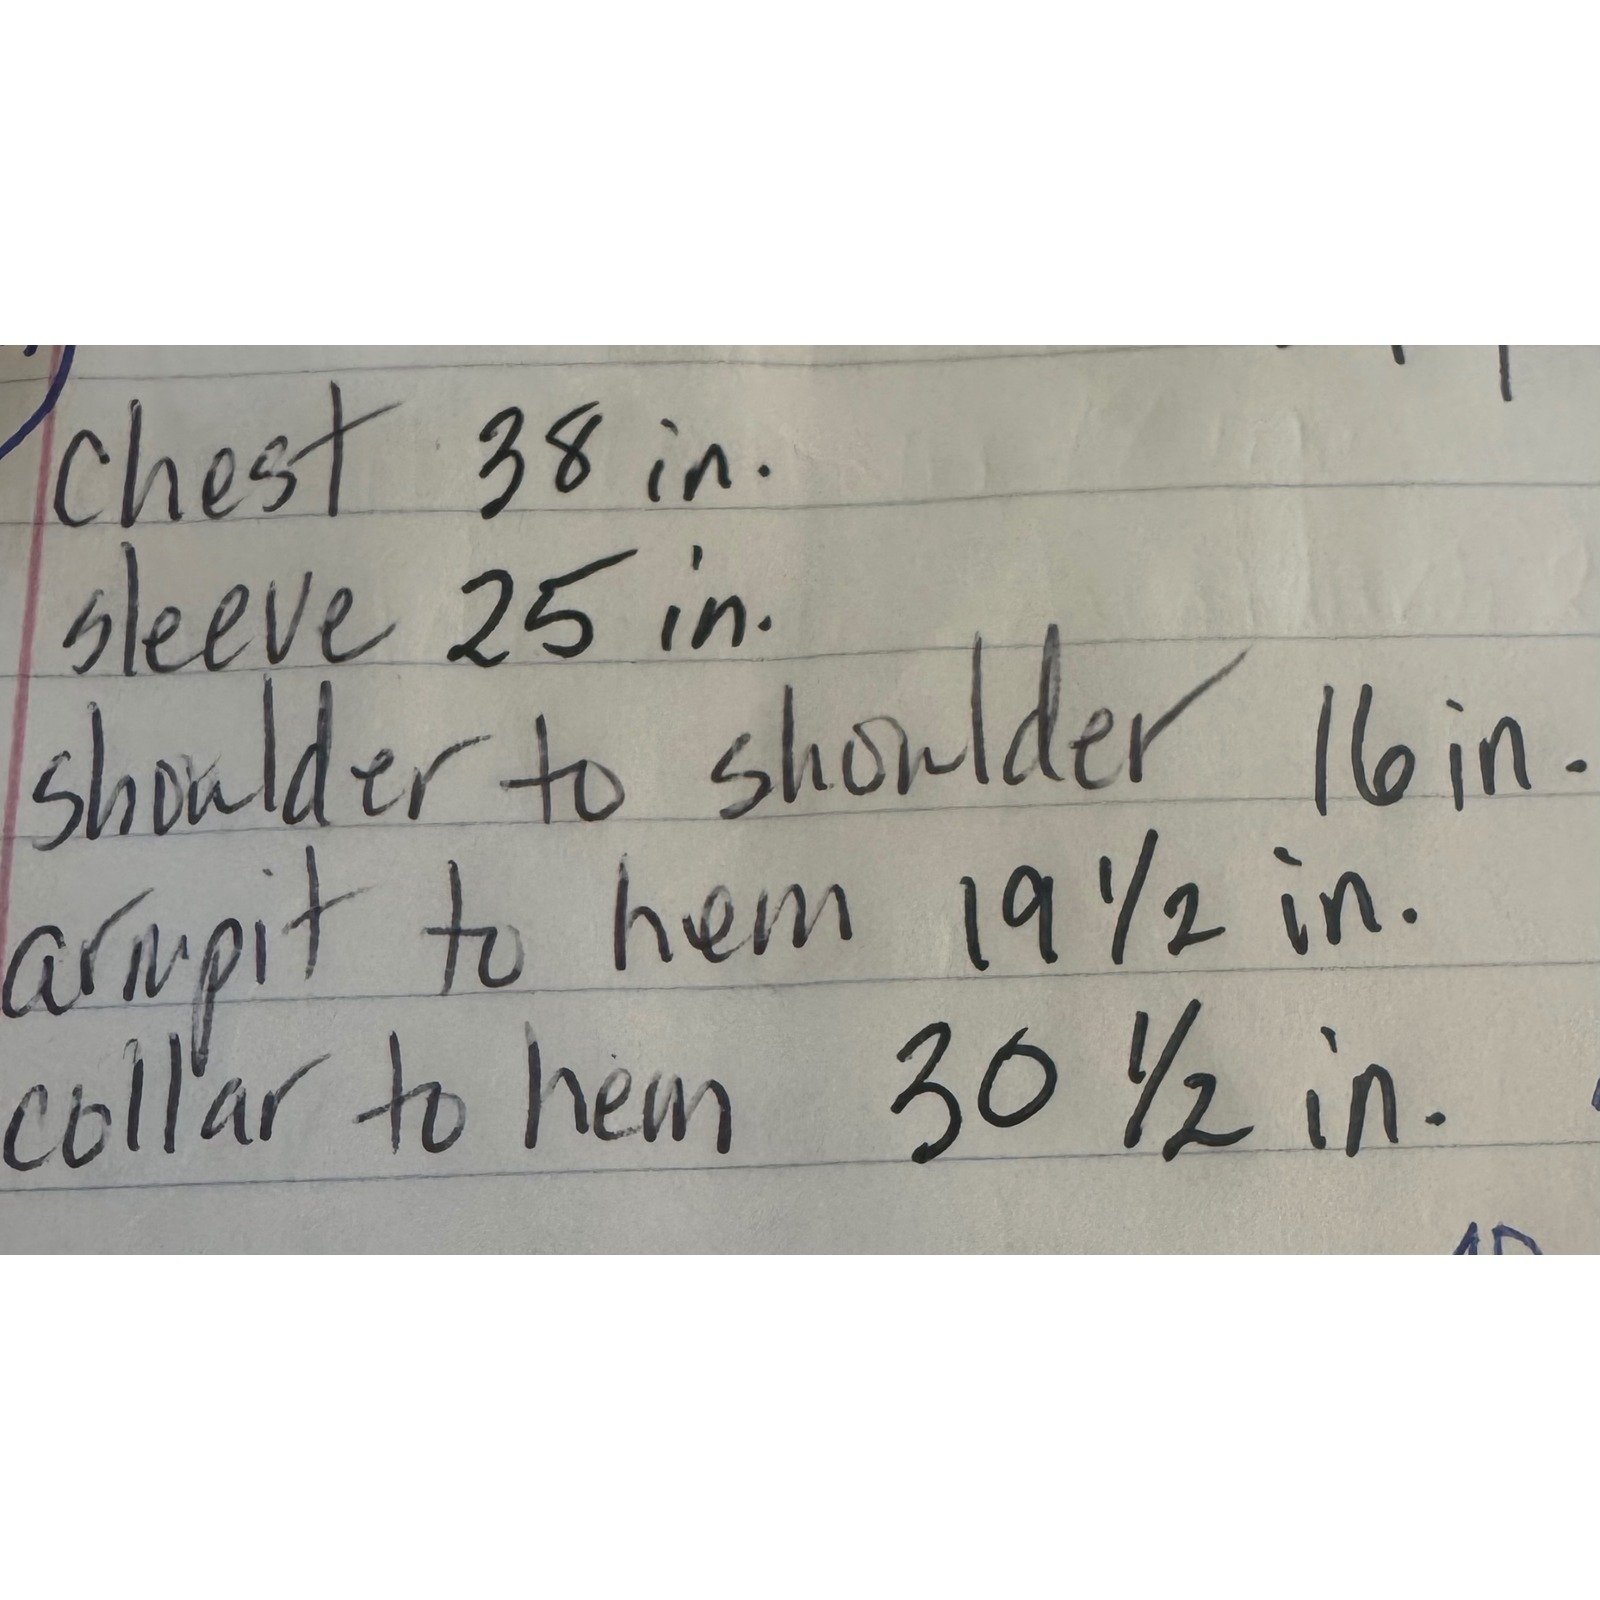 Chest 38 in.
sleeve 25 in.
shoulder to shoulder 16 in.
armpit to hem 19 1/2 in.
collar to hem 30 1/2 in.